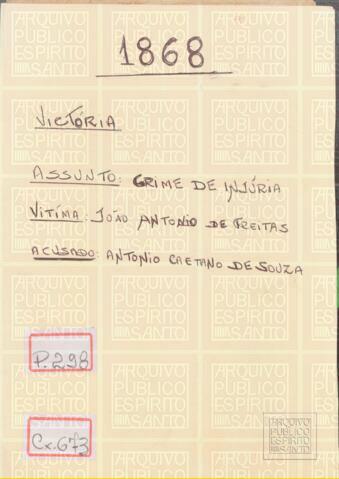 1868
VICTÓRIA
ASSUNTO: CRIME DE INJÚRIA
VITÍMA: JOÃO ANTONIO DE FREITAS
ACUSADO: ANTONIO CAETANO DE SOUZA
P.298
Cx.673
ARQUIVO
PÚBLICO
ESPÍRITO
SANTO